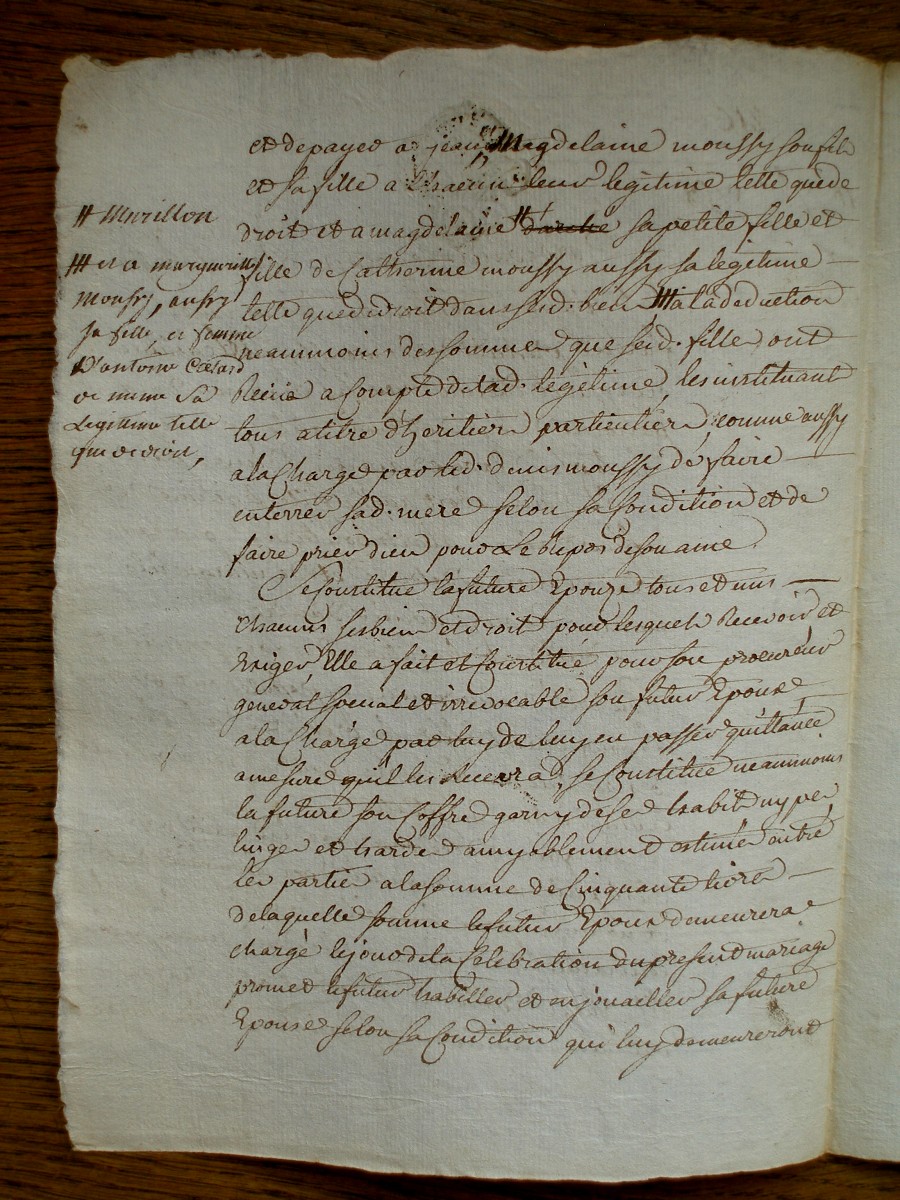 # Murillon
## et a margueritte
Moussy, aussy
sa fille, et femme
D'antoine
de meme sa
Legitime telle
que de droit,
et de payer a jean Magdelaine moussy son fils
et sa fille a chacun leur legitime telle que de
droit et a magdelaine # darche sa petite fille et
fille de Catherine moussy aussy sa legitime
telle que de droit dans sesd. biens ## a la deduction
neammoins des sommes que sesd. filles ont
Reçües a compte de lad. legitime, les instituant
tous a titre d'heritiers particuliers, comme aussy
a la Charge par led. denis moussy de faire
enterrer sad. mere selon sa Condition et de
faire prier dieu pour Le Repos de son ame.
Se Constitue la future Epouze tous et uns
chacuns ses biens et droits pour lesquels Recevoir et
Exiger, Elle a fait et Constitué pour son procureur
general special et irrevocable son futur Epoux
a la Charge par luy de luy en passer quittance
a mesure qu'il les recevrad, se Constitue neammoins
la future son Coffre garny de ses habits nuptes
linges et hardes amyablement estimés entre
les parties a la somme de Cinquante livres
de laquelle somme le futur Epoux demeurera
chargé le jour de la Celebration du present mariage
promet le futur habiller et enjouailler sa future
Epouse selon sa Condition qui luy demeureront